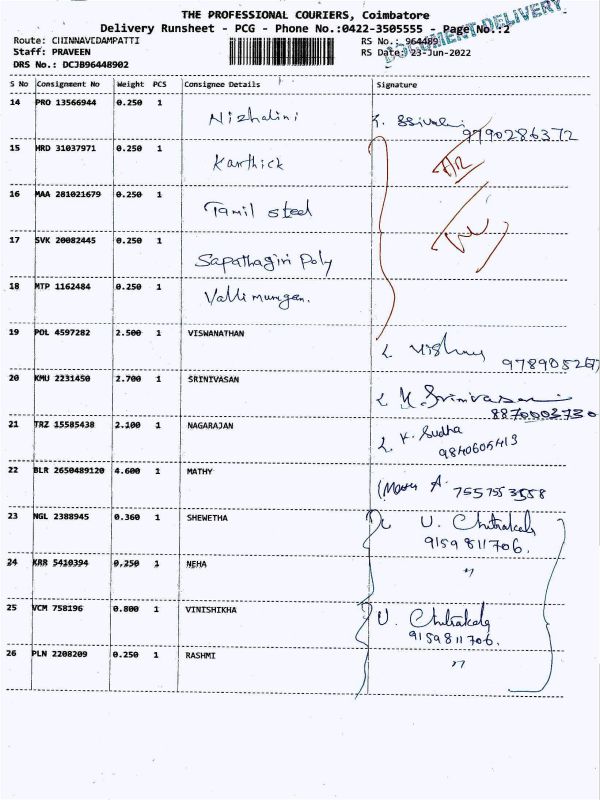 THE PROFESSIONAL COURIERS, Coimbatore
DOCUMENT DELIVERY
Delivery Runsheet - PCG - Phone No.:0422-3505555 - Page No.:2
Route: CHINNAVEDAMPATTI RS No.: 964489
Staff: PRAVEEN RS Date: 23-Jun-2022
DRS No.: DCJB96448902
S No Consignment No Weight PCS Consignee Details Signature
14 PRO 13566944 0.250 1 Nizhalini
9790286372
15 HRD 31037971 0.250 1 Karthick
16 MAA 281021679 0.250 1 Tamil steel
17 SVK 20082445 0.250 1 Sapathagiri Poly
18 MTP 1162484 0.250 1 Vallimurugan.
19 POL 4597282 2.500 1 VISWANATHAN
20 KMU 2231450 2.700 1 SRINIVASAN K Srinivasan
8870003730
21 TRZ 15585438 2.100 1 NAGARAJAN K. Sudha
9840605413
22 BLR 2650489120 4.600 1 MATHY 7557553558
23 NGL 2388945 0.360 1 SHEWETHA U. Chitrakala
9159811706.
24 KRR 5410394 0.250 1 NEHA "
25 VCM 758196 0.800 1 VINISHIKHA U. Chitrakala
9159811706.
26 PLN 2208209 0.250 1 RASHMI "